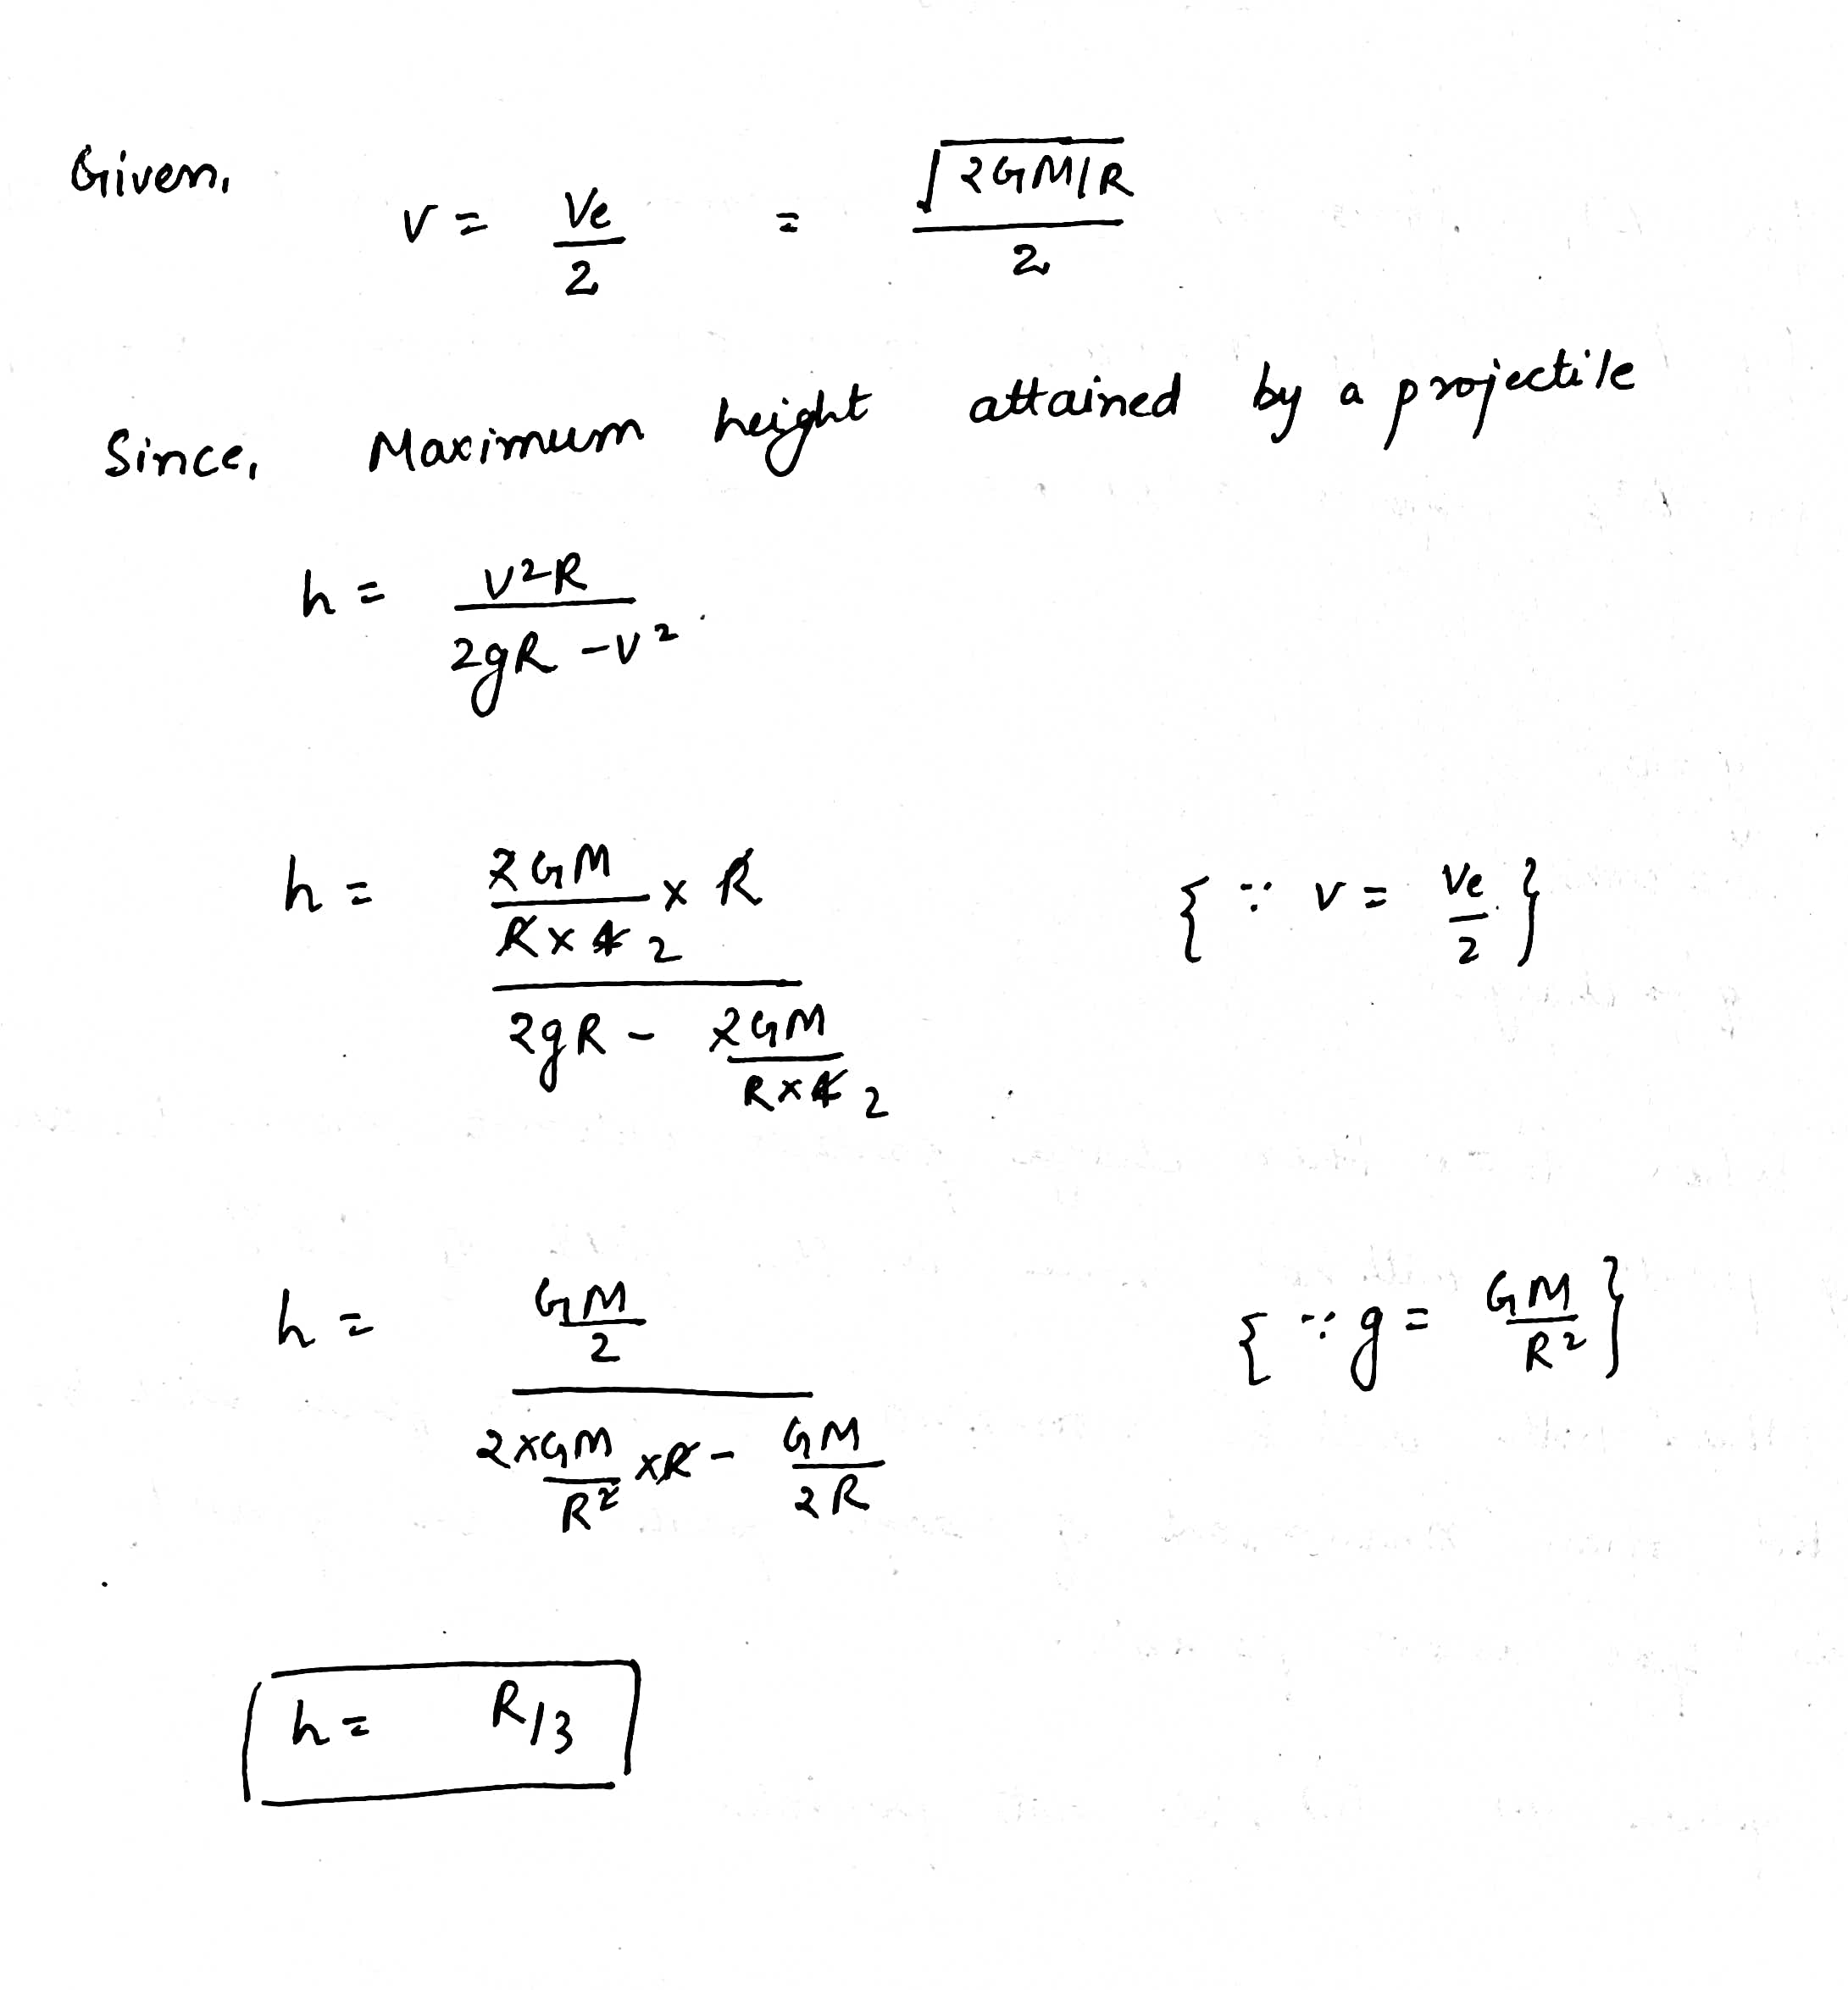 Given, v = Ve/2 = √2GM/R / 2
Since, Maximum height attained by a projectile
h = v²R / 2gR - v²
h = 2GM/R×4 2 × R / 2gR - 2GM/R×4 2 { ∵ v = Ve/2 }
h = GM/2 / 2×GM/R² ×R - GM/2R { ∵ g = GM/R² }
h = R/3